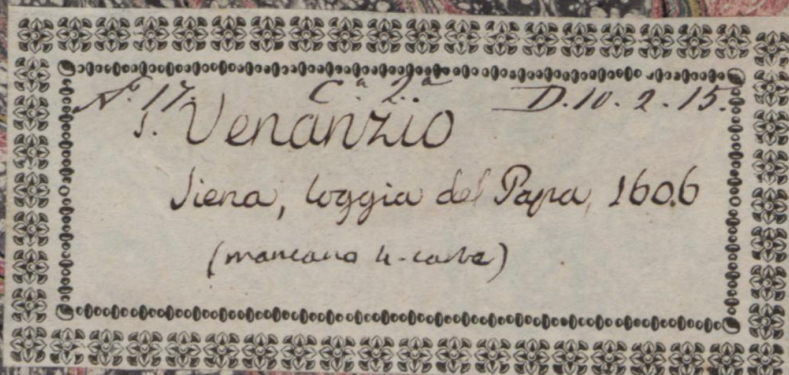 N.° 17. C.ª 2.ª D. 10. 2. 15.
S. Venanzio
Siena, loggia del Papa, 1606
(mancano 4 carte)